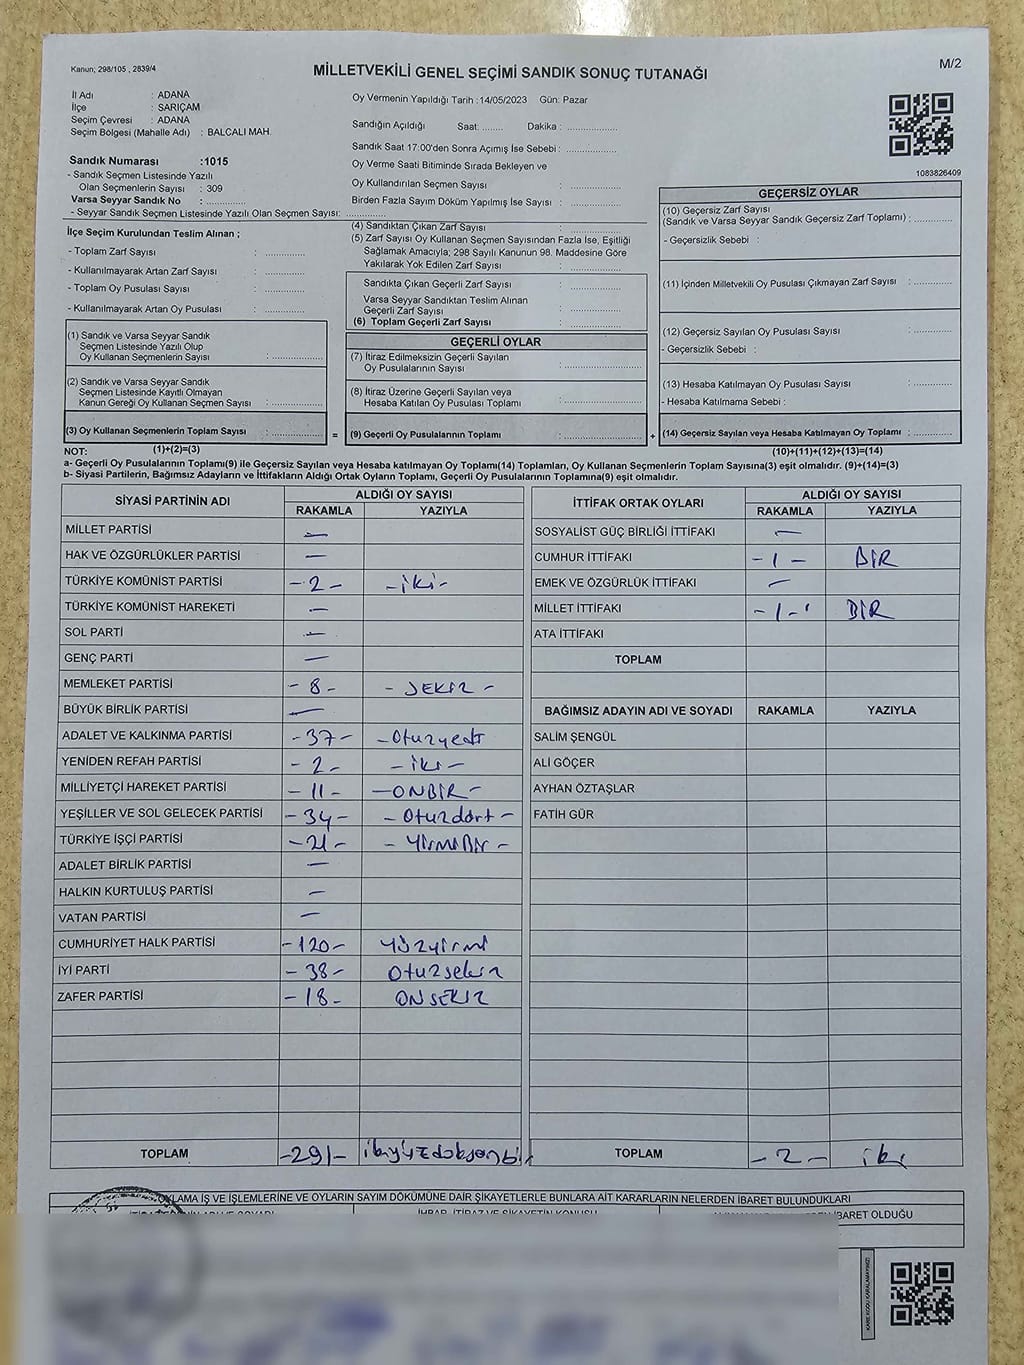 Kanun; 298/105 , 2839/4
M/2
MİLLETVEKİLİ GENEL SEÇİMİ SANDIK SONUÇ TUTANAĞI
İl Adı : ADANA
İlçe : SARIÇAM
Seçim Çevresi : ADANA
Seçim Bölgesi (Mahalle Adı) : BALCALI MAH.
Sandık Numarası :1015
- Sandık Seçmen Listesinde Yazılı
Olan Seçmenlerin Sayısı : 309
Varsa Seyyar Sandık No : ....................
- Seyyar Sandık Seçmen Listesinde Yazılı Olan Seçmen Sayısı: ..............
Oy Vermenin Yapıldığı Tarih :14/05/2023 Gün: Pazar
Sandığın Açıldığı Saat: ........ Dakika : ..................
Sandık Saat 17:00'den Sonra Açımış İse Sebebi: ..................
Oy Verme Saati Bitiminde Sırada Bekleyen ve
Oy Kullandırılan Seçmen Sayısı : ..............
Birden Fazla Sayım Döküm Yapılmış İse Sayısı : ..............
1083826409
İlçe Seçim Kurulundan Teslim Alınan ;
- Toplam Zarf Sayısı : ..............
- Kullanılmayarak Artan Zarf Sayısı : ..............
- Toplam Oy Pusulası Sayısı : ..............
- Kullanılmayarak Artan Oy Pusulası : ..............
(1) Sandık ve Varsa Seyyar Sandık
Seçmen Listesinde Yazılı Olup
Oy Kullanan Seçmenlerin Sayısı : ..................
(2) Sandık ve Varsa Seyyar Sandık
Seçmen Listesinde Kayıtlı Olmayan
Kanun Gereği Oy Kullanan Seçmen Sayısı : ..................
(3) Oy Kullanan Seçmenlerin Toplam Sayısı : ..................
(1)+(2)=(3)
(4) Sandıktan Çıkan Zarf Sayısı : ..............
(5) Zarf Sayısı Oy Kullanan Seçmen Sayısından Fazla İse, Eşitliği
Sağlamak Amacıyla; 298 Sayılı Kanunun 98. Maddesine Göre
Yakılarak Yok Edilen Zarf Sayısı : ..............
Sandıkta Çıkan Geçerli Zarf Sayısı : ..............
Varsa Seyyar Sandıktan Teslim Alınan
Geçerli Zarf Sayısı : ..............
(6) Toplam Geçerli Zarf Sayısı : ..............
GEÇERLİ OYLAR
(7) İtiraz Edilmeksizin Geçerli Sayılan
Oy Pusulalarının Sayısı : ..................
(8) İtiraz Üzerine Geçerli Sayılan veya
Hesaba Katılan Oy Pusulası Toplamı : ..................
= (9) Geçerli Oy Pusulalarının Toplamı : ..................
GEÇERSİZ OYLAR
(10) Geçersiz Zarf Sayısı
(Sandık ve Varsa Seyyar Sandık Geçersiz Zarf Toplamı) : ..............
- Geçersizlik Sebebi :
(11) İçinden Milletvekili Oy Pusulası Çıkmayan Zarf Sayısı : ..............
(12) Geçersiz Sayılan Oy Pusulası Sayısı : ..............
- Geçersizlik Sebebi :
(13) Hesaba Katılmayan Oy Pusulası Sayısı : ..............
- Hesaba Katılmama Sebebi :
+ (14) Geçersiz Sayılan veya Hesaba Katılmayan Oy Toplamı : ..............
(10)+(11)+(12)+(13)=(14)
NOT:
a- Geçerli Oy Pusulalarının Toplamı(9) ile Geçersiz Sayılan veya Hesaba katılmayan Oy Toplamı(14) Toplamları, Oy Kullanan Seçmenlerin Toplam Sayısına(3) eşit olmalıdır. (9)+(14)=(3)
b- Siyasi Partilerin, Bağımsız Adayların ve İttifakların Aldığı Ortak Oyların Toplamı, Geçerli Oy Pusulalarının Toplamına(9) eşit olmalıdır.
SİYASİ PARTİNİN ADI ALDIĞI OY SAYISI
RAKAMLA YAZIYLA
MİLLET PARTİSİ —
HAK VE ÖZGÜRLÜKLER PARTİSİ —
TÜRKİYE KOMÜNİST PARTİSİ -2- -iki-
TÜRKİYE KOMÜNİST HAREKETİ —
SOL PARTİ —
GENÇ PARTİ —
MEMLEKET PARTİSİ -8- -SEKİZ-
BÜYÜK BİRLİK PARTİSİ —
ADALET VE KALKINMA PARTİSİ -37- -Otuzyedi
YENİDEN REFAH PARTİSİ -2- -iki-
MİLLİYETÇİ HAREKET PARTİSİ -11- -ONBİR-
YEŞİLLER VE SOL GELECEK PARTİSİ -34- -Otuzdört-
TÜRKİYE İŞÇİ PARTİSİ -21- -YirmiBir-
ADALET BİRLİK PARTİSİ —
HALKIN KURTULUŞ PARTİSİ —
VATAN PARTİSİ —
CUMHURİYET HALK PARTİSİ -120- Yüzyirmi
İYİ PARTİ -38- Otuzsekiz
ZAFER PARTİSİ -18- ONSEKİZ
TOPLAM -291- ikiyüzdoksanbir
İTTİFAK ORTAK OYLARI ALDIĞI OY SAYISI
RAKAMLA YAZIYLA
SOSYALİST GÜÇ BİRLİĞİ İTTİFAKI —
CUMHUR İTTİFAKI -1- BİR
EMEK VE ÖZGÜRLÜK İTTİFAKI —
MİLLET İTTİFAKI -1-' BİR
ATA İTTİFAKI
TOPLAM
BAĞIMSIZ ADAYIN ADI VE SOYADI RAKAMLA YAZIYLA
SALİM ŞENGÜL
ALİ GÖÇER
AYHAN ÖZTAŞLAR
FATİH GÜR
TOPLAM -2- iki
OYLAMA İŞ VE İŞLEMLERİNE VE OYLARIN SAYIM DÖKÜMÜNE DAİR ŞİKAYETLERLE BUNLARA AİT KARARLARIN NELERDEN İBARET BULUNDUKLARI
İHBAR, İTİRAZ VE ŞİKAYETİN KONUSU
İBARET OLDUĞU
KARE KODU KARALAMAYINIZ!